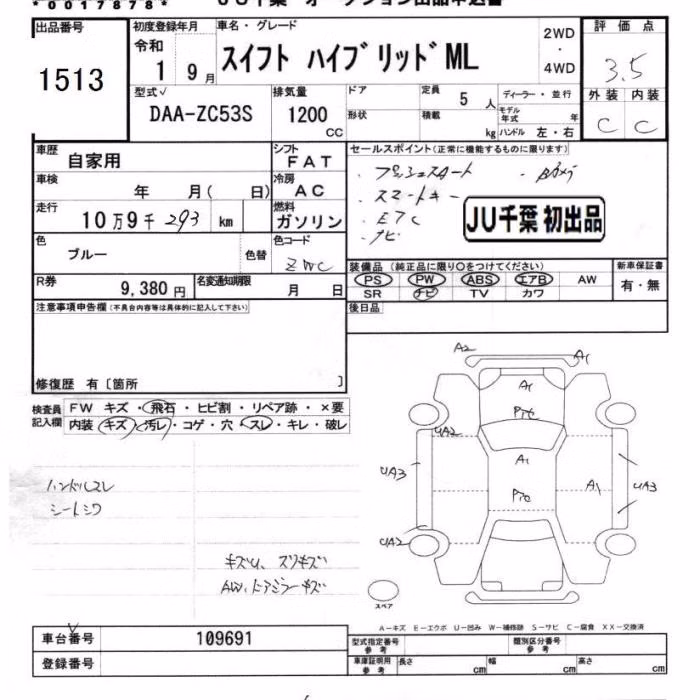 *0017878*
JU千葉 オークション出品申込書
出品番号
1513
初度登録年月
令和
1 9月
車名・グレード
スイフト ハイブリッドML
2WD
・
4WD
評価点
3.5
外装 内装
C C
型式√
DAA-ZC53S
排気量
1200
CC
ドア
形状
定員
5 人
積載
kg
ディーラー・並行
モデル年式 年
ハンドル 左・右
車歴
自家用
シフト
FAT
車検
年 月( 日)
冷房
AC
走行
10万9千293 km
燃料
ガソリン
色
ブルー
色替
色コード
ZWC
R券
9,380円
名変通知期限
月 日
セールスポイント(正常に機能するものに限ります)
・プッシュスタート
・スマートキー
・ETC
・ナビ
JU千葉 初出品
装備品(純正品に限り○をつけてください)
PS PW ABS エアB AW
SR ナビ TV カワ
新車保証書
有・無
注意事項申告欄(不具合内容等は具体的に記入して下さい)
後日品
修復歴 有〔箇所 〕
検査員
記入欄
FW キズ・飛石・ヒビ割・リペア跡・×要
内装 キズ・汚レ・コゲ・穴・スレ・キレ・破レ
ハンドルスレ
シートシワ
キズU、スリキズ
AW、ドアミラーキズ
A2
A1
A1
UA2
A1
UA3
A1
UA3
UA2
スペア
A-キズ E-エクボ U-凹み W-補修跡 S-サビ C-腐食 XX-交換済
車台番号
109691
登録番号
型式指定番号
参考
類別区分番号
参考
車庫証明用
参考
長さ cm
幅 cm
高さ cm